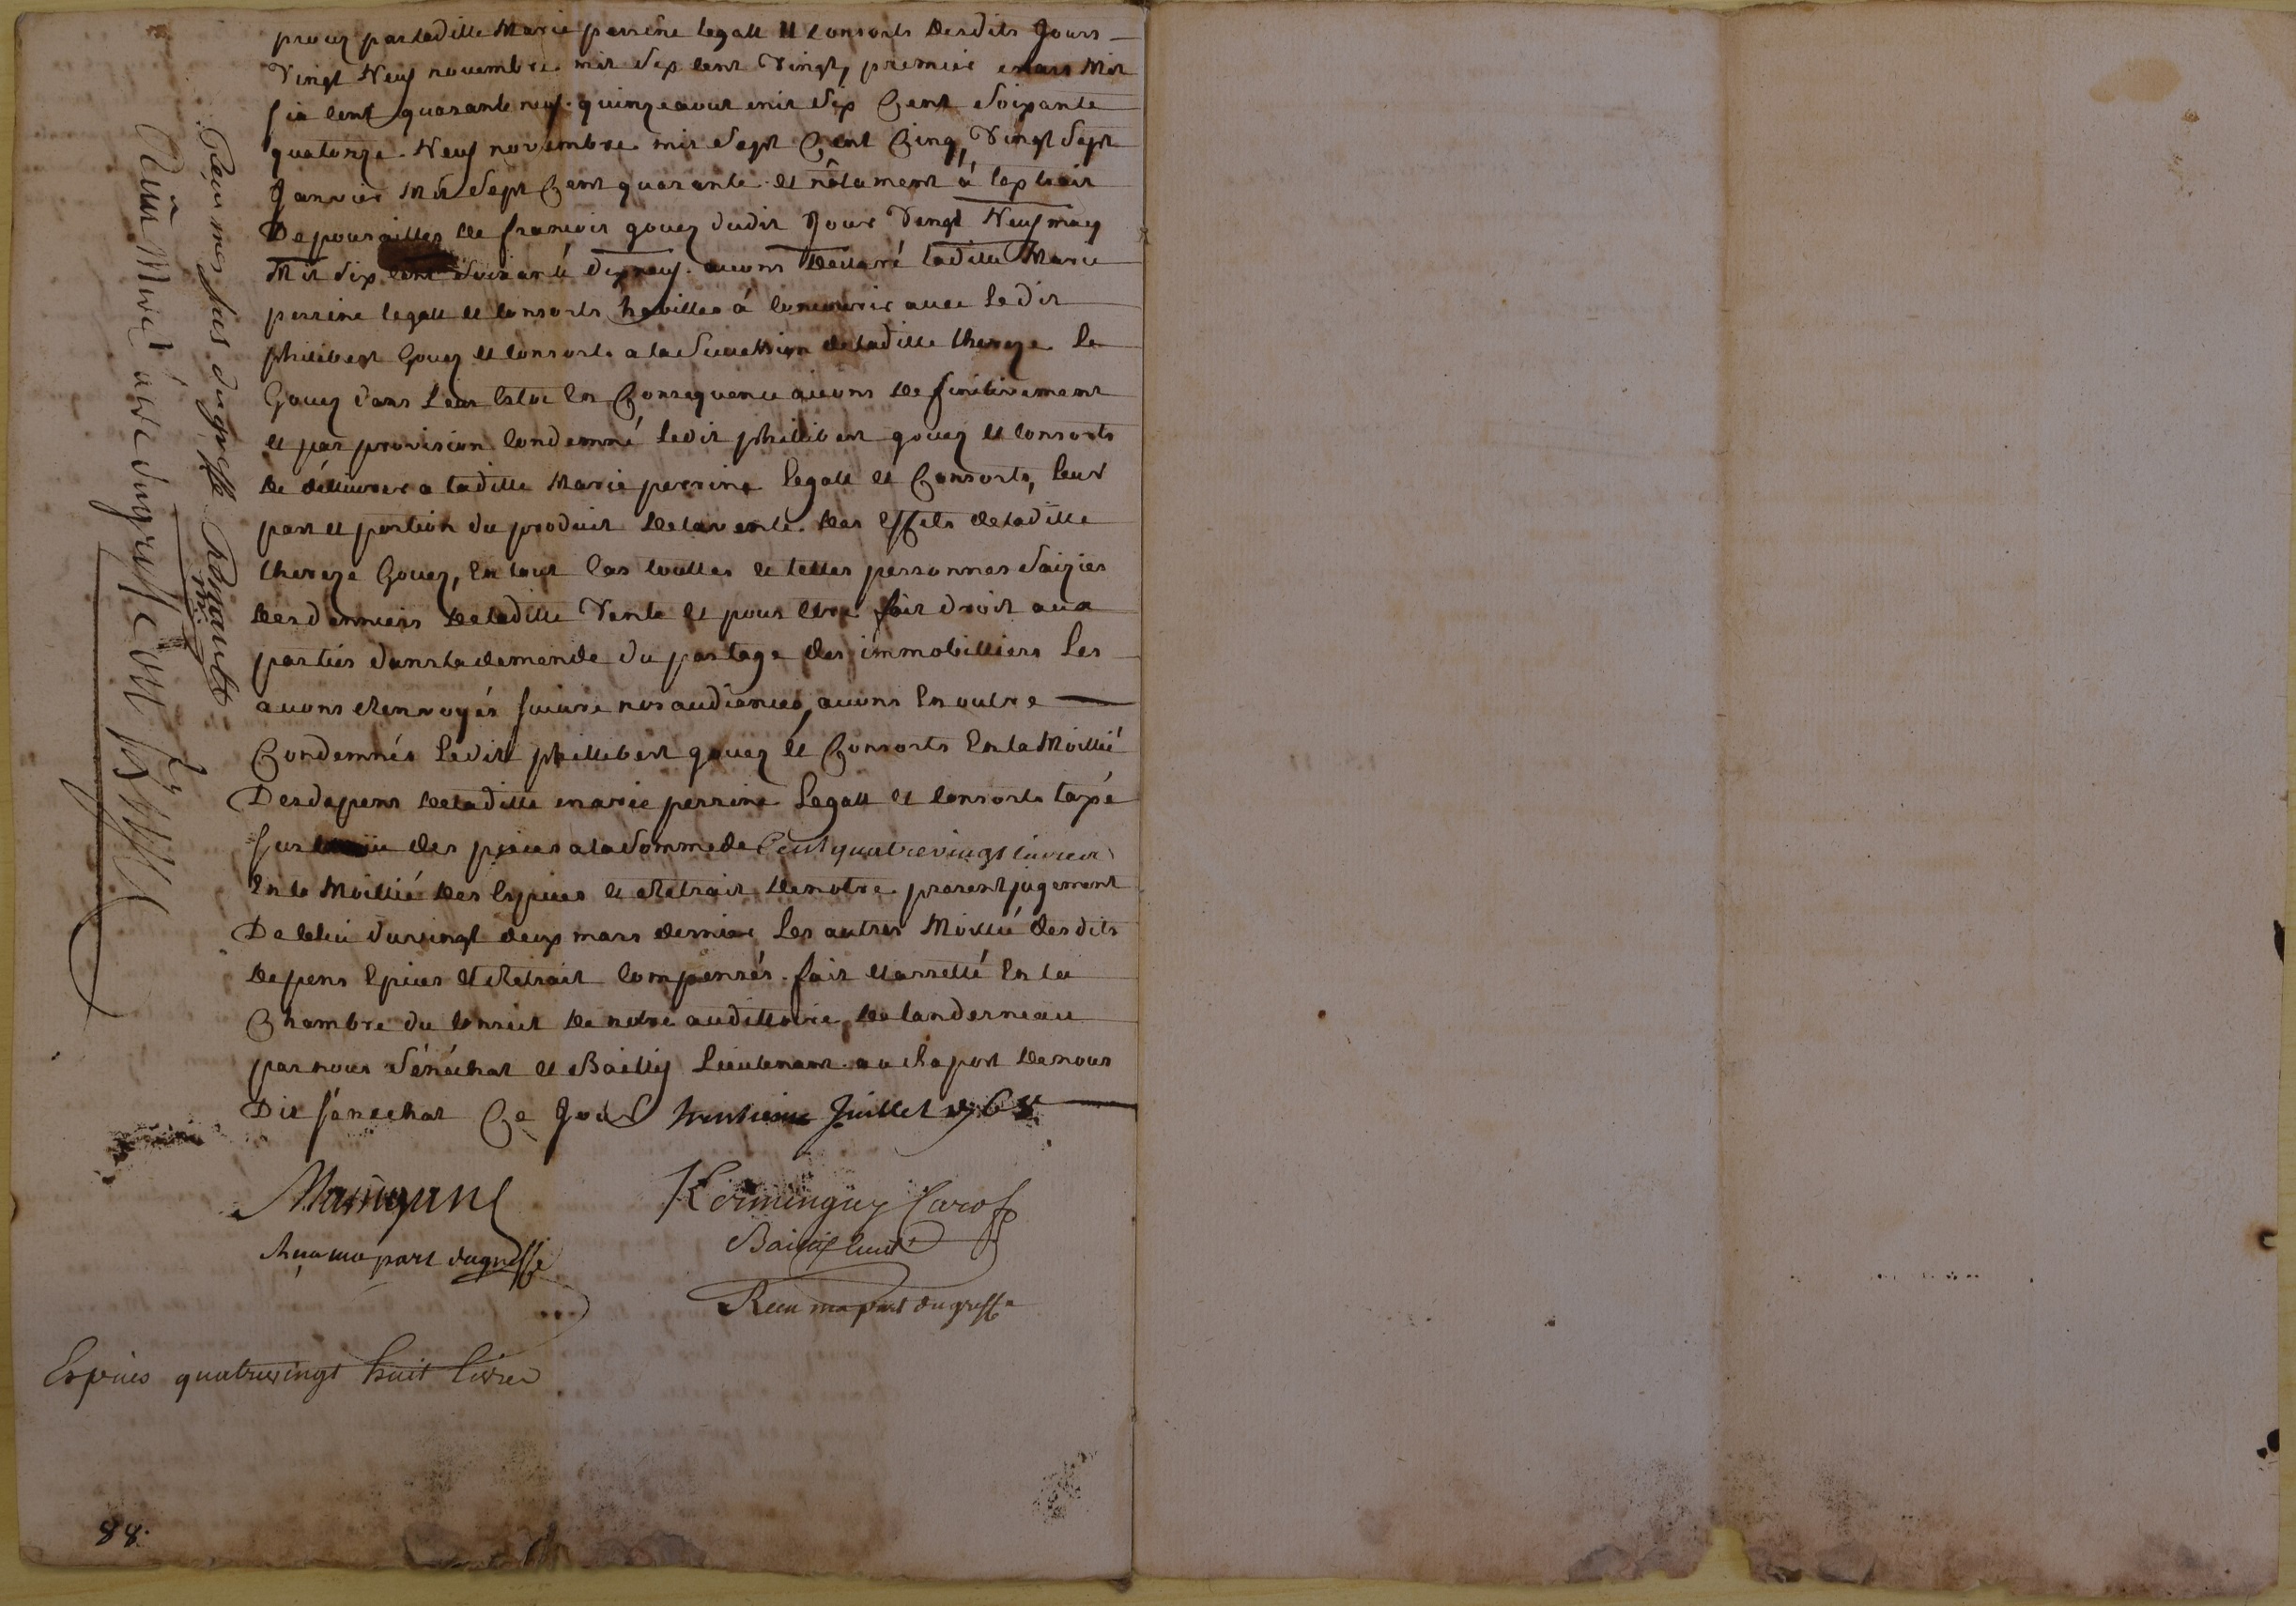 procez par laditte Marie perrine legall et consorts desdits Jours
Vingt Neuf novembre mil Six cent Vingt, premier mars Mil
six cent quarante neuf. quinze aout mil Six Cent Soixante
quatorze. Neuf novembre mil Sept Cent Cinq, Vingt Sept
Janvier Mil Sept Cent quarante et nôtament á lextrait
De de francois gouez dudit Jour Vingt Neuf may
Mil Six cent Soixante dixneuf. avons declaré laditte Marie
perrine legall et consorts habilles á concourir avec ledit
philibert Gouez et consorts a la Succession deladitte thereze le
Gouez dans Leur estoc en Consequence avons definitivement
et par provision condemné ledit phillibert gouez et consorts
de délivrer a laditte Marie perrine legall et Consorts, leur
part et portion du produit delavente des effets deladitte
thereze Gouez, en tout cas touttes et telles personnes Saizies
desdenniers deladitte Vente et pour etre fait droit aux
parties dans lademende du partage des immobilliers Les
avons Renvoyés suivre nos audiences, avons en outre
Condemnés ledit phillibert gouez et Consorts en la Moittié
Desdepens deladitte marie perrine Legall et consorts taxé
sur des pieces a la Somme de Cent quatrevingt livres
en la Moittié des epices et Retrait denotre present jugement
De celui du vingt deux mars dernier les autres Moittié desdits
depens epices et Retrait compensés. fait et arretté en la
Chambre du conseil de notre audittoire, de landerneau
par nous Sénéchal et Bailly Lieutenant au Raport denous
Dit sénechal Ce Jour trentieme Juillet 176
Kerminguy Carof
Bailly lieut
Recu ma part du greffe
Recu ma part du greffe
Espices quatrevingt huit livres
88.
Recu mes sus du greffe